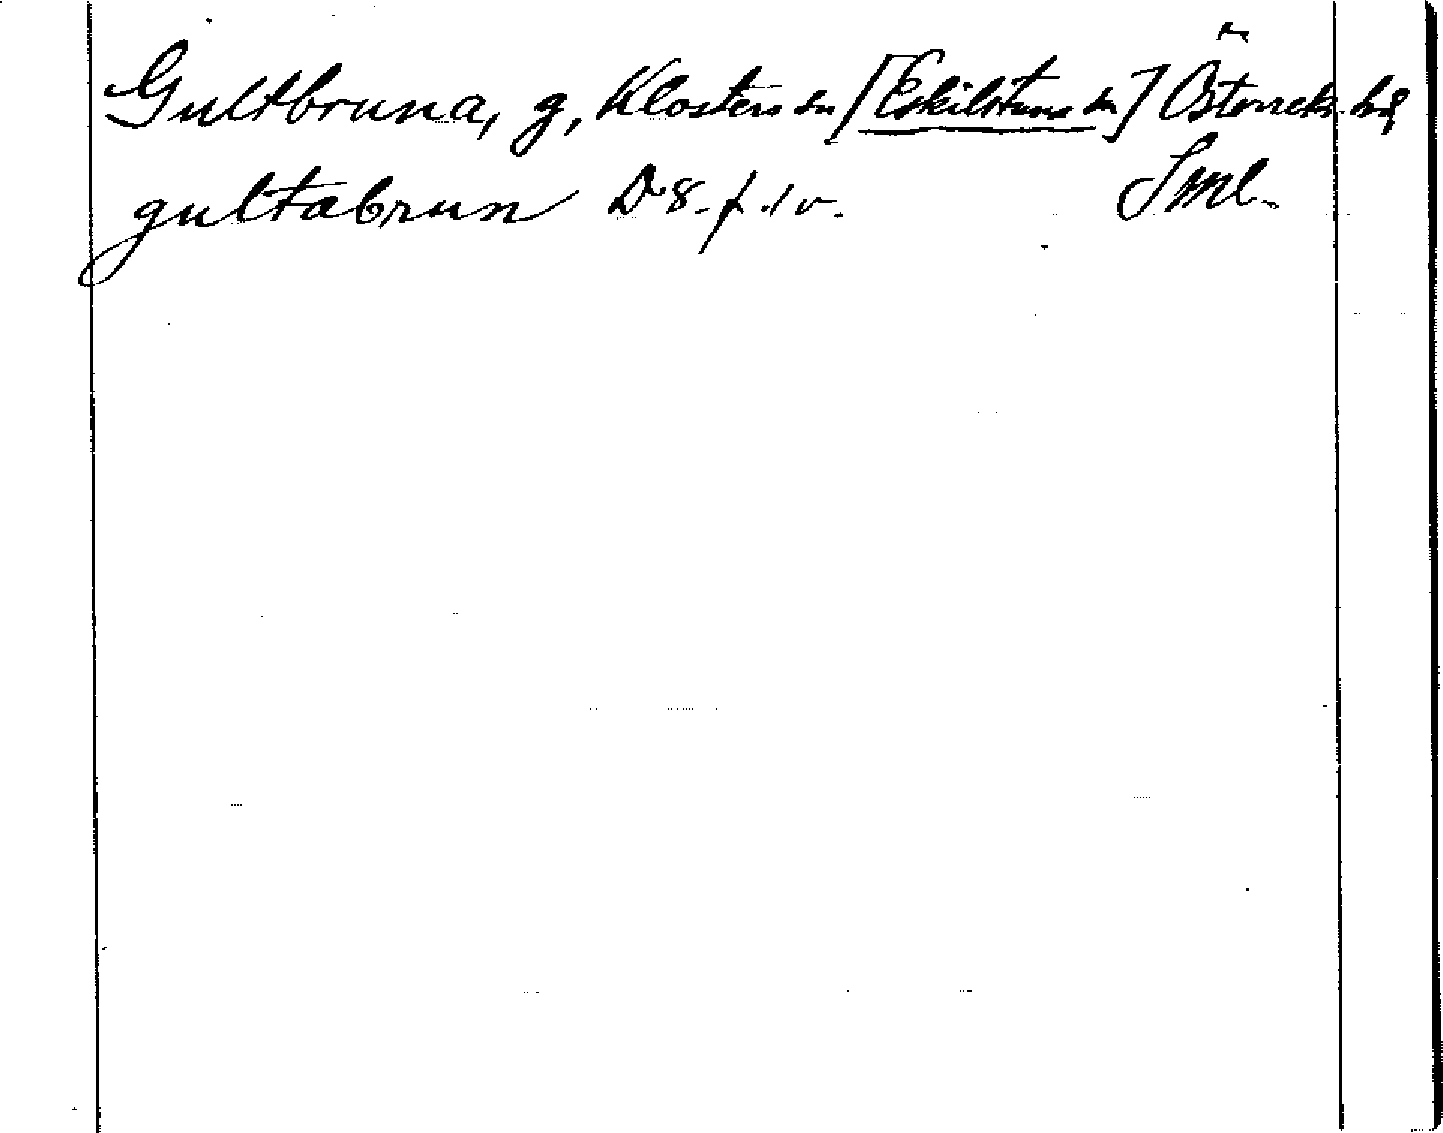 Gultbruna, g, Klosters sn [Eskilstuna sn] Österrek. hd
Sml.
gultabrun D 8. f. 1 v.